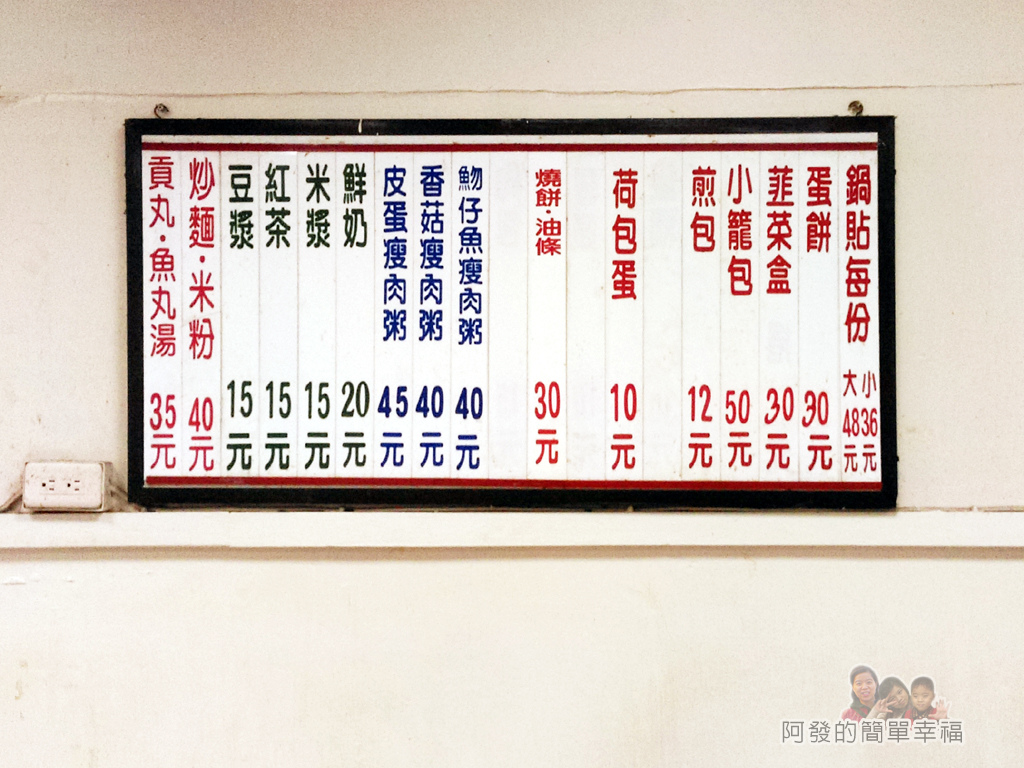 鍋貼每份 小36元 大48元
蛋餅 30元
韮菜盒 30元
小籠包 50元
煎包 12元
荷包蛋 10元
燒餅·油條 30元
魩仔魚瘦肉粥 40元
香菇瘦肉粥 40元
皮蛋瘦肉粥 45元
鮮奶 20元
米漿 15元
紅茶 15元
豆漿 15元
炒麵·米粉 40元
貢丸·魚丸湯 35元
阿發的簡單幸福